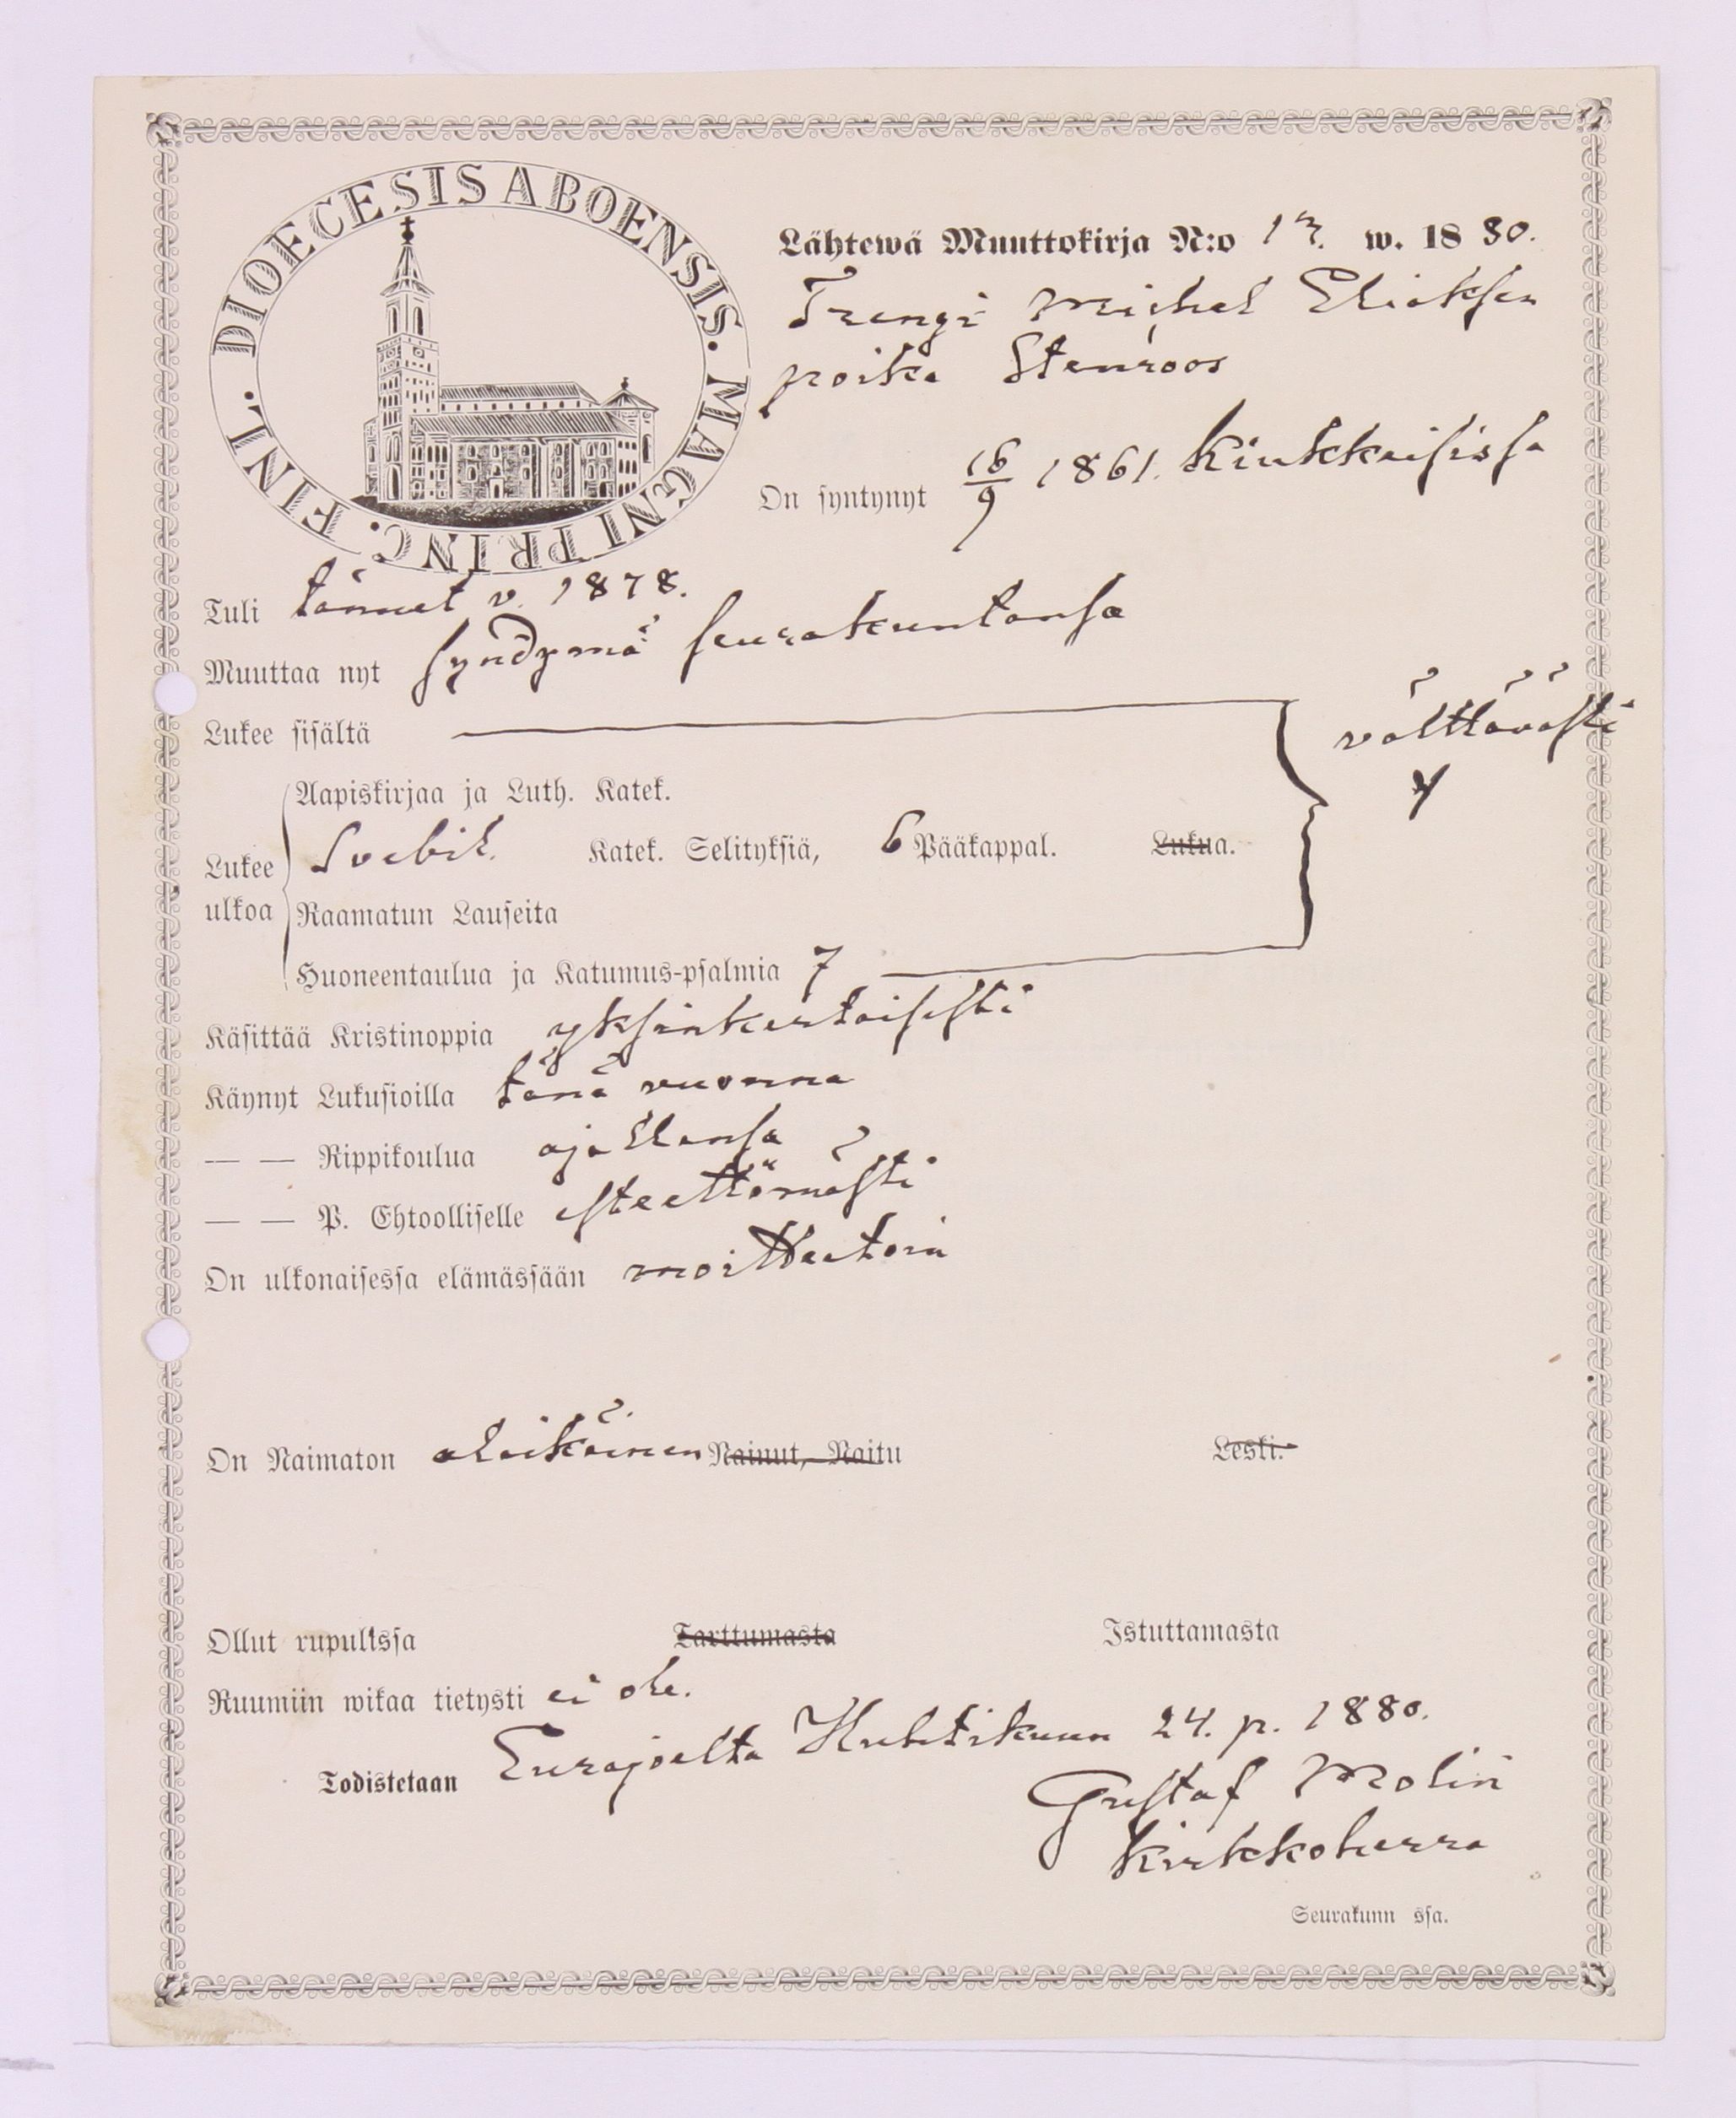 DIOECESIS ABOENSIS. MAGNI PRINC. FINL.
Lähtewä Muuttokirja N:o 17. w. 1880.
Trengi Michel Eliaksen
poika Stenroos
On syntynyt 16/9 1861. Kiukkaisissa
Tuli tännet v. 1878.
Muuttaa nyt syndymä seurakuntansa
Lukee sisältä
välttävästi
Aapiskirjaa ja Luth. Katek.
Lukee ulkoa
Svebil. Katek. Selityksiä, 6 Pääkappal. Lukua.
Raamatun Lauseita
Huoneentaulua ja Katumus-psalmia 7
Käsittää Kristinoppia yksinkertaisesti
Käynyt Lukusioilla tänä vuonna
— — Rippikoulua ajallansa
— — P. Ehtoolliselle esteettömästi
On ulkonaisessa elämässään moitteetoin
On Naimaton alaikäinen Nainut, Naitu Lesti.
Ollut rupulissa Tarttumasta Istuttamasta
Ruumiin wikaa tietysti ei ole.
Todistetaan Eurajoelta Huhtikuun 24. p. 1880.
Gustaf Molin
Kirkkoherra
Seurakunn ssa.